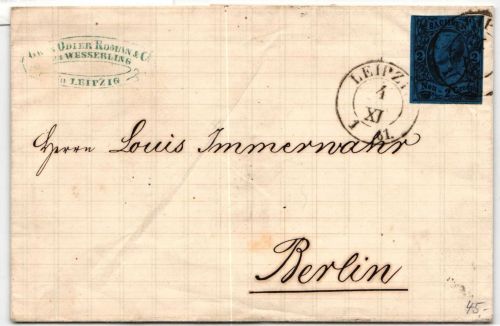 GROS ODIER ROMAN & Cie
WESSERLING
LEIPZIG
LEIPZIG
4
XI
61.
SACHSEN
2
Neu-Grosch.
Herrn Louis Immerwahr
Berlin
45,-